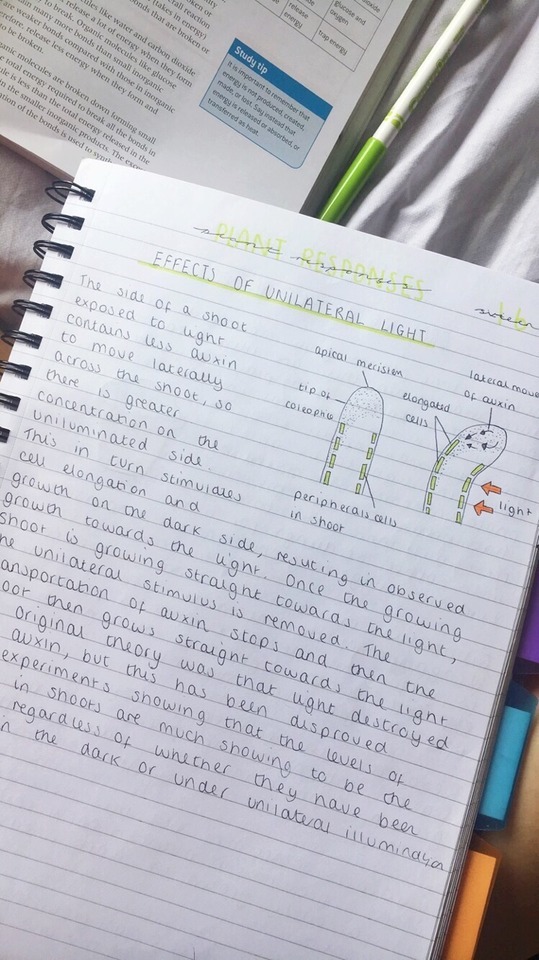 like water and carbon dioxide
release a lot of energy when they form
many bonds that are broken or
Organic molecules like glucose
many more bonds than small inorganic
bonds compared with those in inorganic
release less energy when they form and
to be broken.
organic molecules are broken down forming small
total energy required to break all the bonds in
is less than the total energy released in the
in the smaller inorganic products. The
of the bonds is used to
release
energy
glucose and
oxygen
trap energy
Study tip
It is important to remember that
energy is not produced, created,
made, or lost. Say instead that
energy is released or absorbed, or
transferred as heat.
PLANT RESPONSES
plant responses
EFFECTS OF UNILATERAL LIGHT
The side of a shoot
exposed to light
contains less auxin
to move laterally
across the shoot, so
there is greater
concentration on the
uniluminated side.
This in turn stimulates
cell elongation and
growth on the dark side, resulting in observed
growth towards the light. Once the growing
shoot is growing straight towards the light,
the unilateral stimulus is removed. The
ansportation of auxin stops and then the
oot then grows straight towards the light
Original theory was that light destroyed
auxin, but this has been disproved
experiments showing that the levels of
in shoots are much showing to be the
regardless of whether they have been
in the dark or under unilateral illumination
apical meristem
tip of
coleoptile
peripherals cells
in shoot
elongated
cells
lateral move
of auxin
light